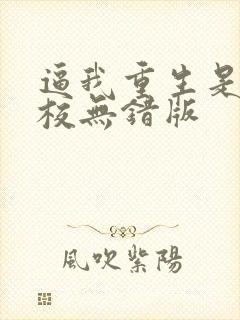 逼我重生是
校無錯版
風吹紫陽